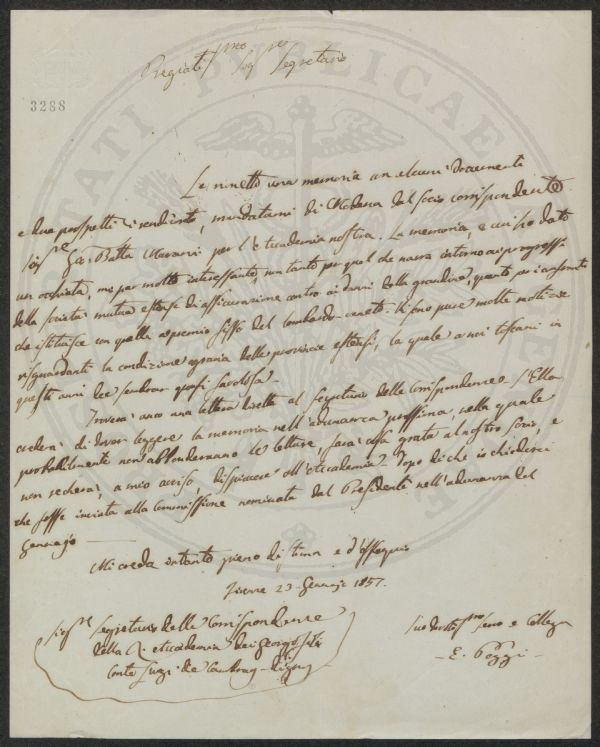 Pregiat.mo Sig.re Segretario
3288
Le rimetto una memoria con alcuni documenti
e due prospetti di rendiconto, mandatami di Modena dal socio corrispondente
Sig.re Gio. Batta per l'Accademia nostra. La memoria, a cui ho dato
un occhiata, mi par molto interessante, non tanto per quel che narra intorno ai progressi
della Società mutua estense di assicurazione contro ai danni della grandine, quanto pei confronti
che istituisce con quella a premio fisso del Lombardo-veneto. Vi sono pure molte notizie
risguardanti la condizione agraria delle provincie estensi, la quale a noi toscani in
questi anni dee sembrar quasi favolosa.
Troverà anco una lettera diretta al Segretario delle Corrispondenze. S'Ella
crederà di dover leggere la memoria nell'adunanza prossima, nella quale
probabilmente non abbonderanno le letture, farà cosa grata al nostro socio, e
non recherà, a mio avviso, dispiacere all'Accademia. Dopo di che io chiederei
che fosse inviata alla Commissione nominata dal Presidente nell'adunanza del
Gennajo
Mi creda intanto pieno di stima e d'ossequio
Firenze 23 Gennajo 1857.
Sig.re Segretario delle Corrispondenze
della R. Accademia dei Georgofili
Conte Luigi de Cambray-Digny
Suo devotiss.mo Servo e Collega
- E. Poggi -